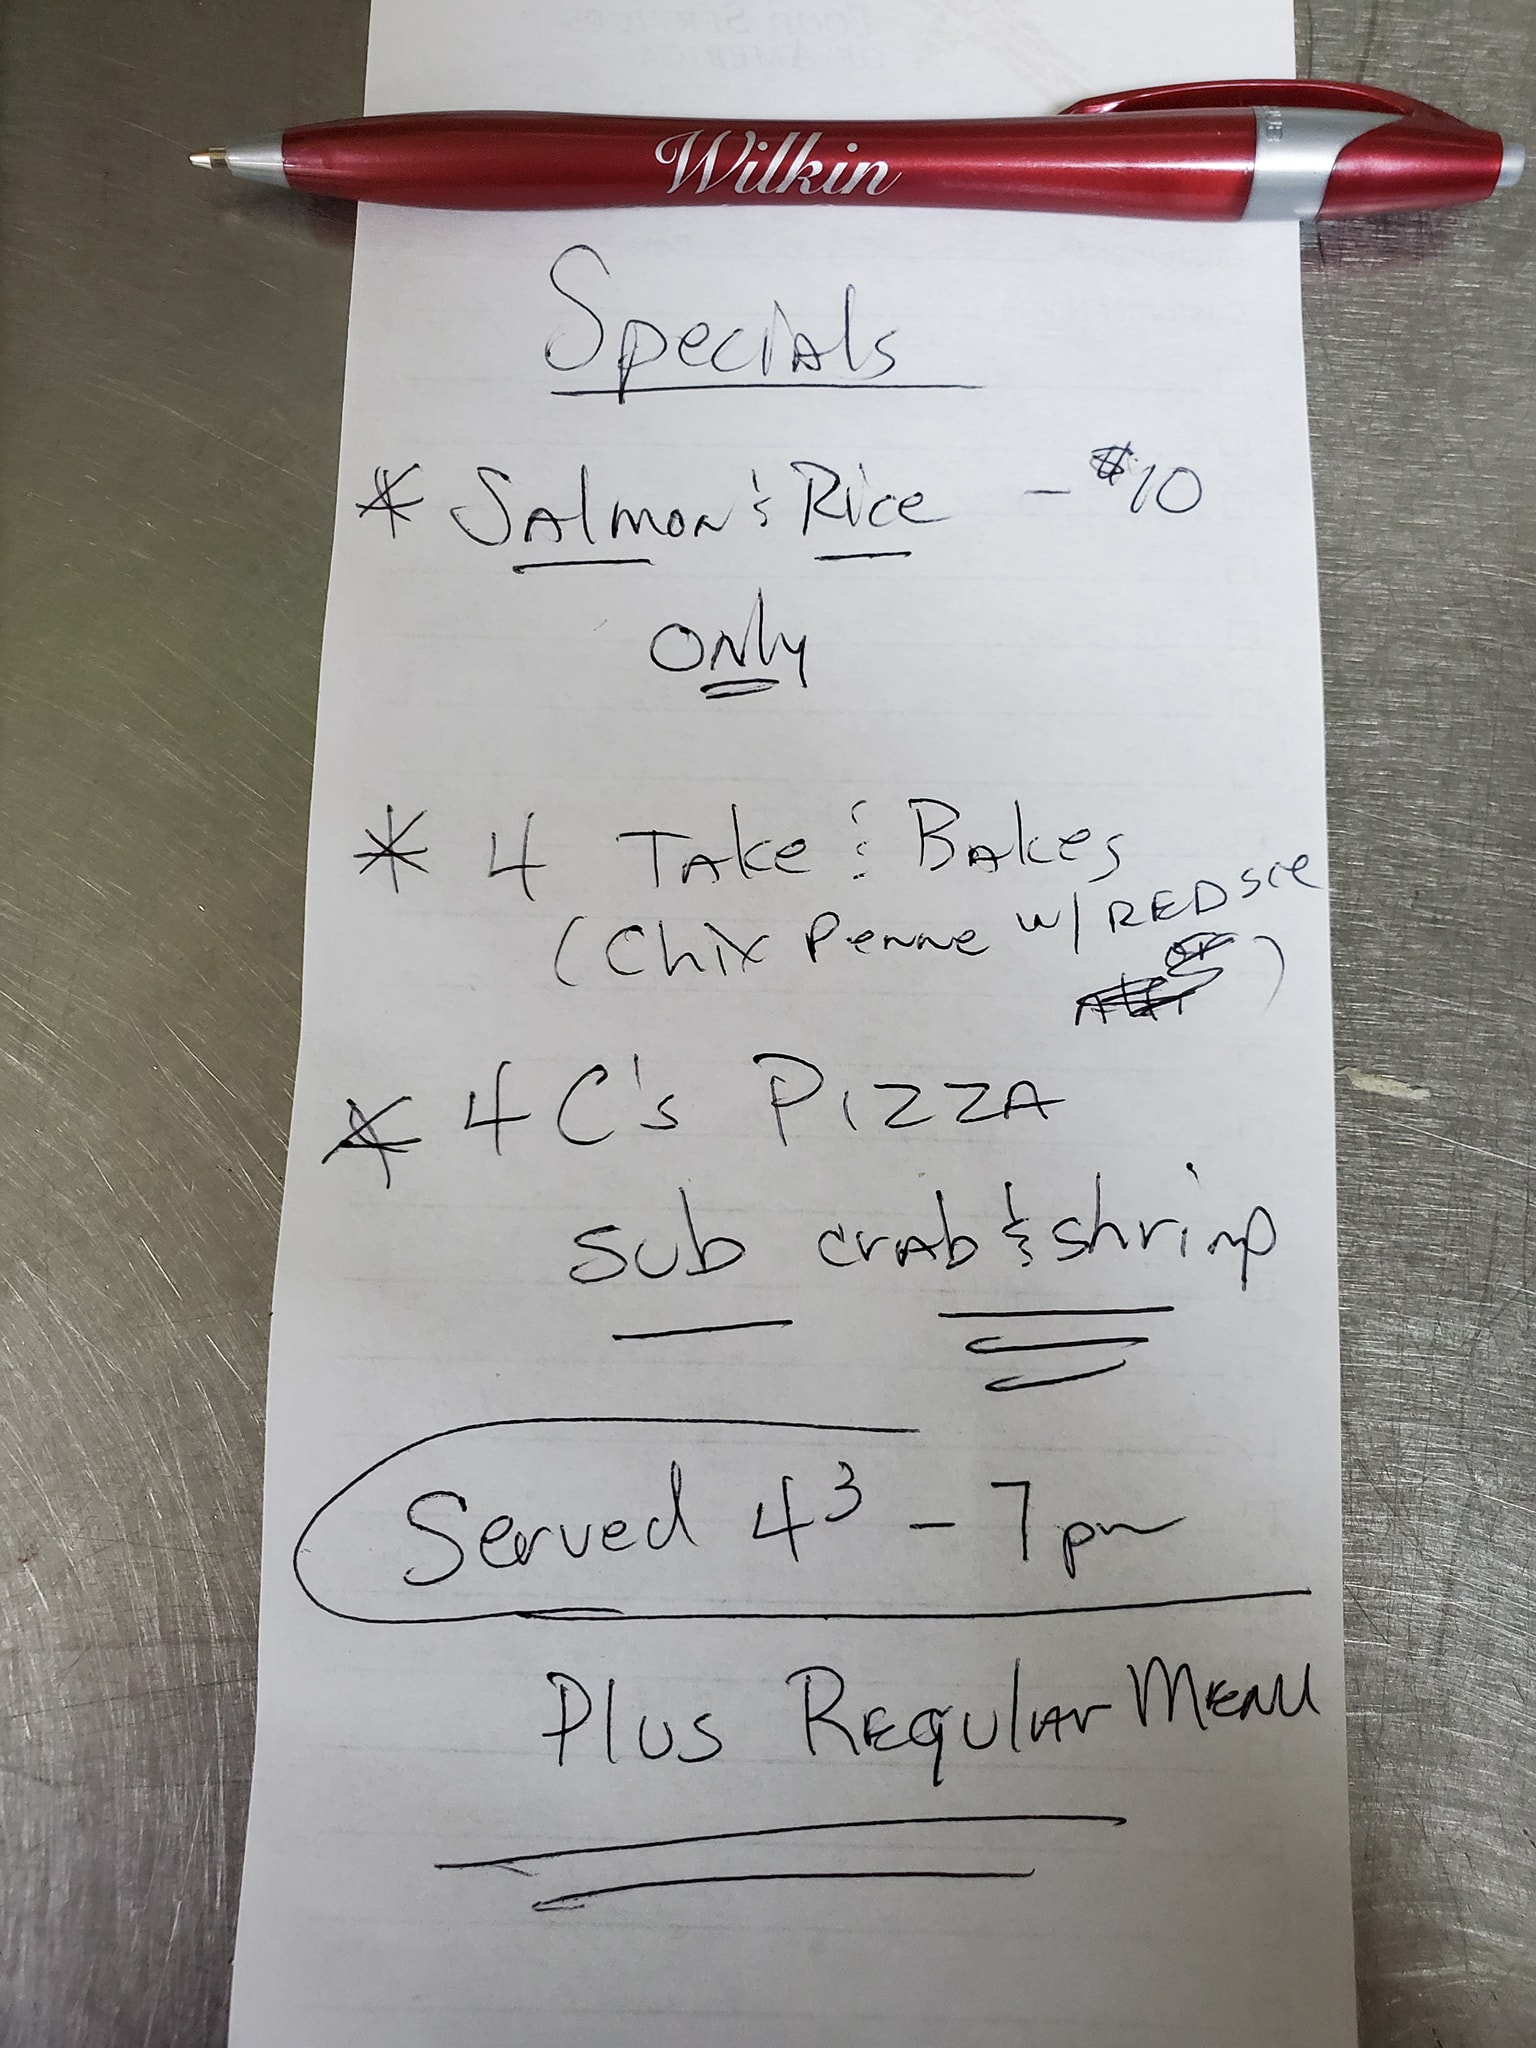 Wilkin
Specials
* Salmon & Rice - $10
only
* 4 Take & Bakes
(Chix Penne w/ RED sce
)
* 4 C's PIZZA
sub crab & shrimp
Served 4³ - 7pm
Plus Regular Menu